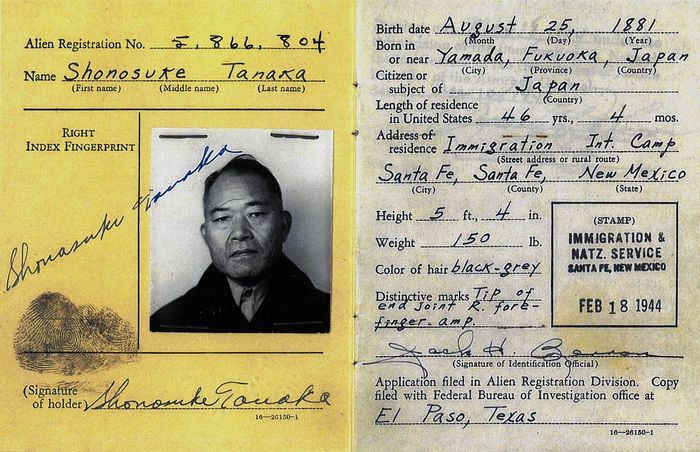 Alien Registration No. 5,866,804
Name Shonosuke Tanaka
(First name) (Middle name) (Last name)
RIGHT
INDEX FINGERPRINT
Shonasuki Tanaka
(Signature
of holder) Shonosuke Tanaka
16—26150-1
Birth date August 25, 1881
(Month (Day) (Year)
Born in
or near Yamada, Fukuoka, Japan
(City) (Province) (Country)
Citizen or
subject of Japan
(Country)
Length of residence
in United States 46 yrs., 4 mos.
Address of
residence Immigration Int. Camp
(Street address or rural route)
Santa Fe, Santa Fe, New Mexico
(City) (County) (State)
Height 5 ft., 4 in.
Weight 150 lb.
Color of hair black-grey
Distinctive marks Tip of
end joint R. fore-
finger-amp.
(STAMP)
IMMIGRATION &
NATZ. SERVICE
SANTA FE, NEW MEXICO
FEB 18 1944
Jack H.
(Signature of Identification Official)
Application filed in Alien Registration Division. Copy
filed with Federal Bureau of Investigation office at
El Paso, Texas
16—26150-1